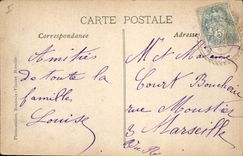 CARTE POSTALE
Correspondance
Adresse
Amitiés
de toute la
famille
Louise
Mr et Madame
Court Boucheau
rue Moustier
3
Marseille